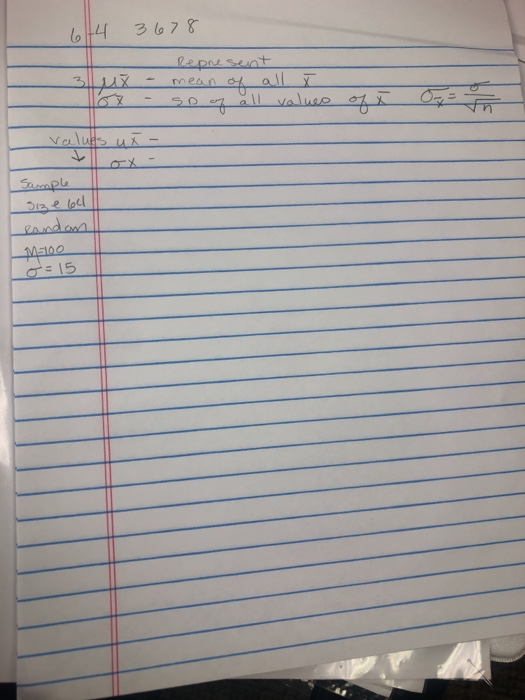 6-4 3 6 7 8
Represent
3 μx̄ - mean of all x̄
σx̄ - SD of all values of x̄ σx̄ = σ/√n
values ux̄ -
↓ σx -
Sample
size 64
Random
M=100
σ = 15